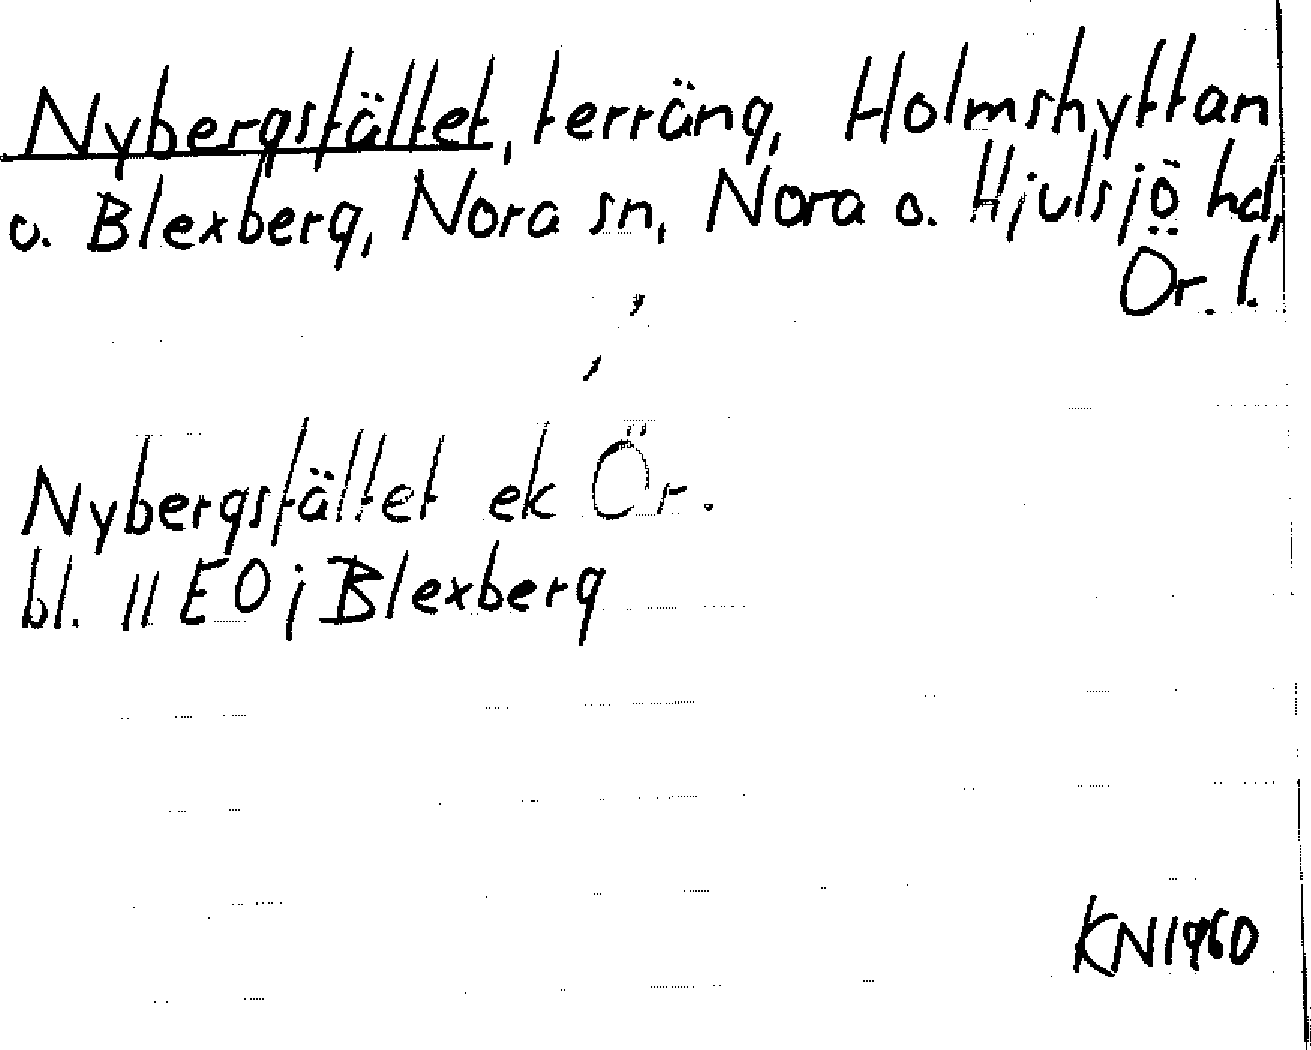 Nybergsfältet, terräng, Holmshyttan
o. Blexberg, Nora sn, Nora o. Hjulsjö hd,
Ör. l.
Nybergsfältet ek Ör.
bl. 11 EO j Blexberg
KN 1960